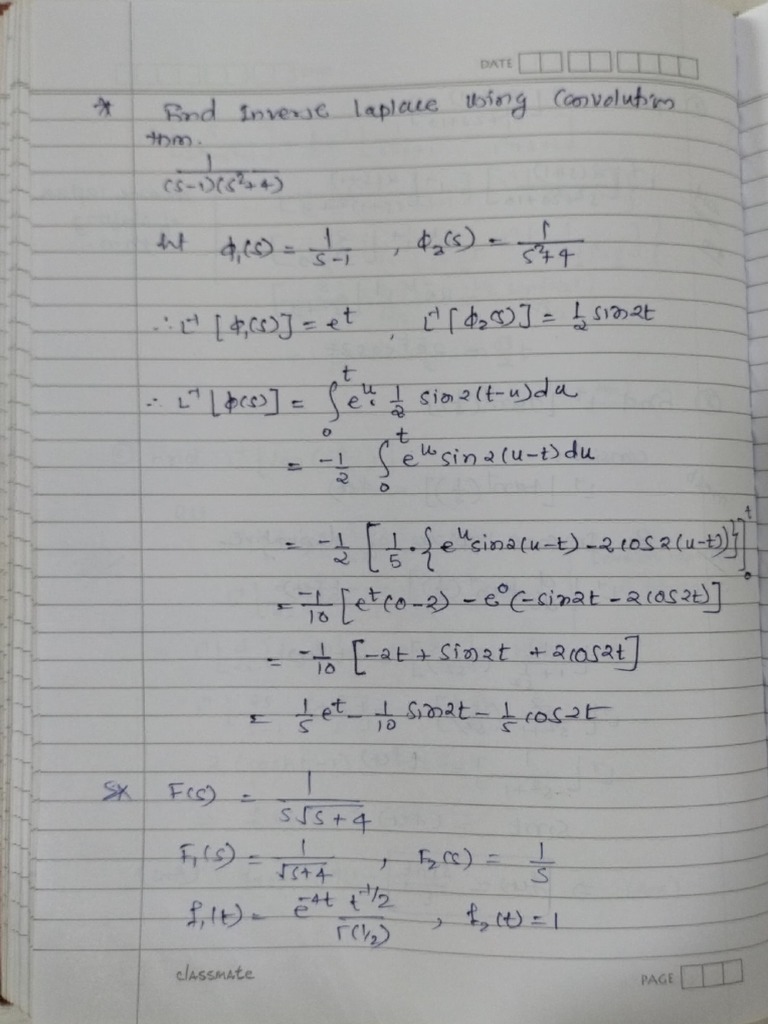 DATE
* Find Inverse laplace using Convolution
thm.
1/((s-1)(s²+4))
let φ₁(s) = 1/(s-1) , φ₂(s) = 1/(s²+4)
∴ L⁻¹ [φ₁(s)] = e^t , L⁻¹ [φ₂(s)] = 1/2 sin2t
∴ L⁻¹ [φ(s)] = ∫₀^t e^u · 1/2 sin2(t-u)du
= -1/2 ∫₀^t e^u sin2(u-t)du
= -1/2 [1/5 · {e^u sin2(u-t) - 2cos2(u-t)}]₀^t
= -1/10 [e^t(0-2) - e⁰(-sin2t - 2cos2t)]
= -1/10 [-2t + sin2t + 2cos2t]
= 1/5 e^t - 1/10 sin2t - 1/5 cos2t
F(s) = 1/(s√(s+4))
F₁(s) = 1/√(s+4) , F₂(s) = 1/s
f₁(t) = e^-4t t^-1/2 / Γ(1/2) , f₂(t) = 1
classmate
PAGE